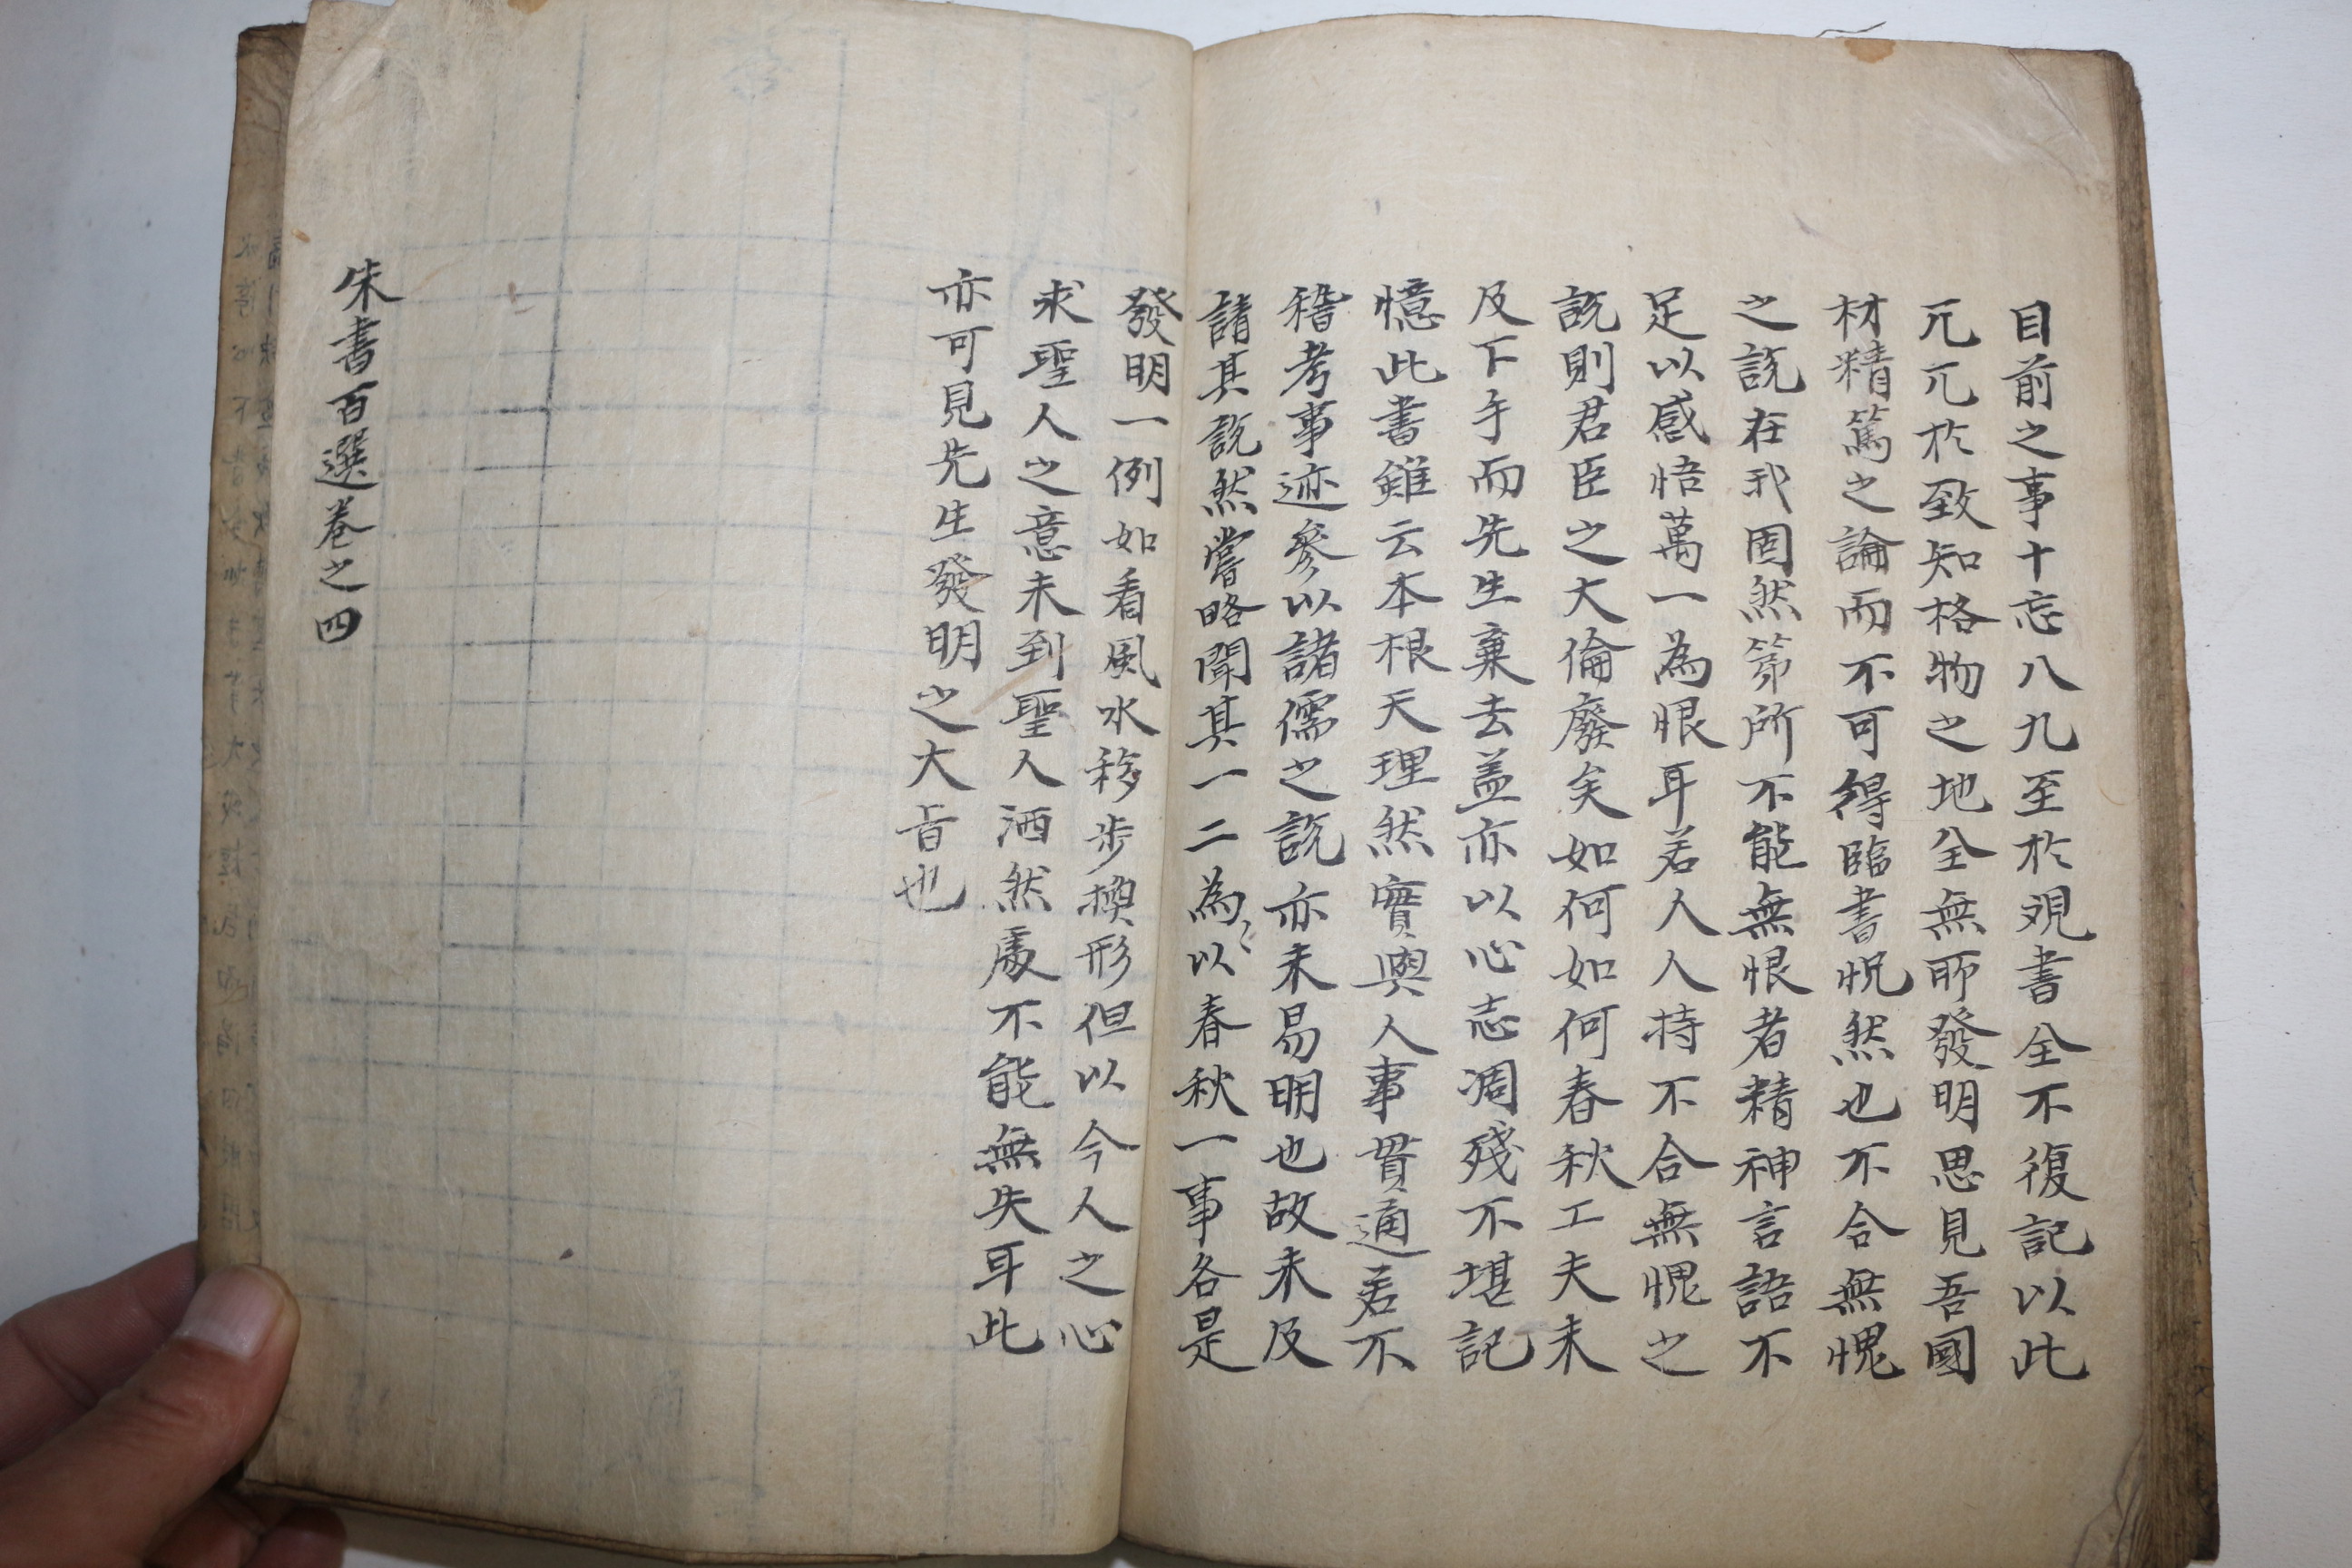 目前之事十忘八九至於覌書全不復記以此
兀兀於致知格物之地全無所發明思見吾國
材精篤之論而不可得臨書怳然也不合無愧
之説在我固然第所不能無恨者精神言語不
足以感悟萬一為恨耳若人人持不合無愧之
説則君臣之大倫廢矣如何如何春秋工夫未
及下手而先生棄去盖亦以心志凋殘不堪記
憶此書雖云本根天理然實與人事貫通若不
稽考事迹參以諸儒之説亦未易明也故未及
請其説然嘗略聞其一二為以春秋一事各是
發明一例如看風水移步換形但以今人之心
求聖人之意未到聖人洒然處不能無失耳此
亦可見先生發明之大旨也
朱書百選卷之四